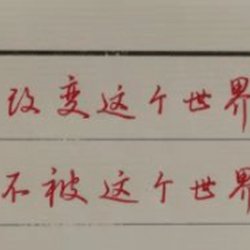 改变这个世界
不被这个世界